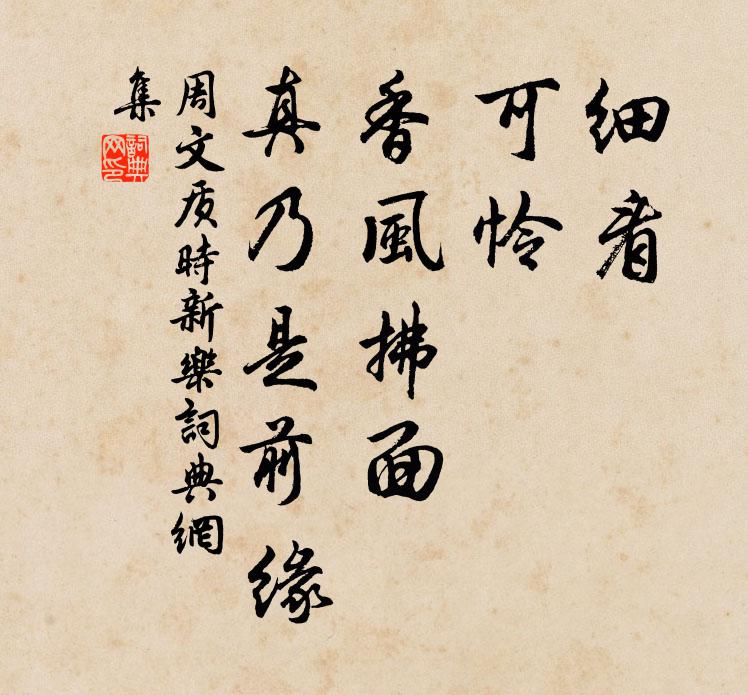 细看
可怜
香風拂面
真乃是前缘
周文质時新樂詞典網
集
詞典
网印